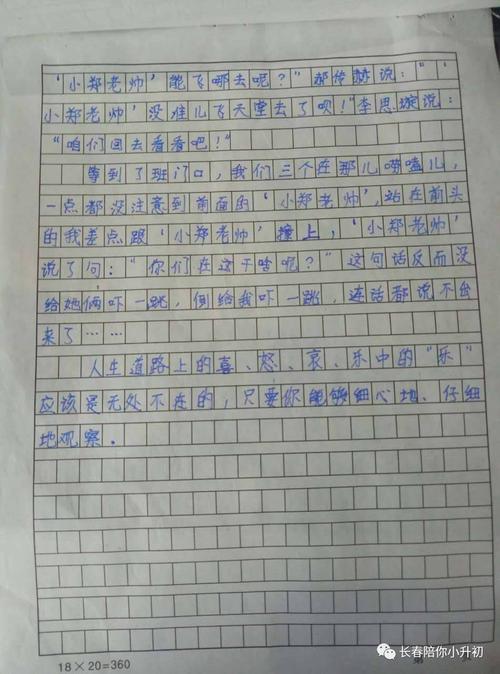 ‘小郑老帅’能飞哪去呢？”郝传赫说：“‘
小郑老帅’没准儿飞天堂去了呗！”李思璇说：
“咱们回去看看吧！”
等到了班门口，我们三个在那儿唠嗑儿，
一点都没注意到前面的‘小郑老帅’，站在前头
的我差点跟‘小郑老帅’撞上，‘小郑老帅’
说了句：“你们在这干啥呢？”这句话反而没
给她俩吓一跳，倒给我吓一跳，连话都说不出
来了……
人生道路上的喜、怒、哀、乐中的“乐”
应该是无处不在的，只要你能够细心地、仔细
地观察。
18×20=360
第
长春陪你小升初